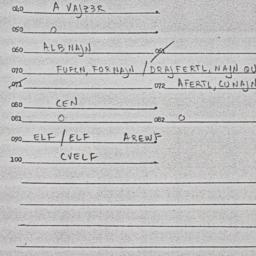 040 A VAJZ3R
050 0
060 ALBNAJN 061
070 FUFCN, FORNAJN / DRAJFERTL, NAJN OU
071 072 AFERTL, CUNAJN
080 CEN
081 0 082 0
090 ELF / ELF AREWF
100 CVELF